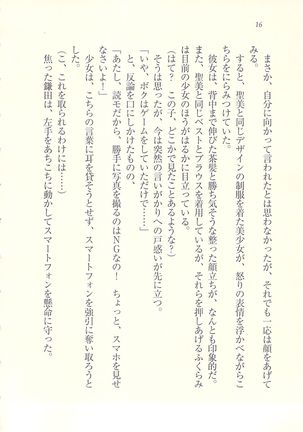 16
まさか、自分に向かって言われたとは思わなかったが、それでも一応は顔をあげて
みる。
すると、聖美と同じデザインの制服を着た美少女が、怒りの表情を浮かべながらこ
ちらをにらみつけていた。
彼女は、背中まで伸びた茶髪と勝ち気そうな整った顔立ちが、なんとも印象的だ。
また、聖美と同じベストとブラウスを着用しているが、それらを押しあげるふくらみ
は目前の少女のほうがはるかに目立っている。
(はて? この子、どこかで見たことあるような?)
そうは思ったが、今は突然の言いがかりへの戸惑いが先に立つ。
「いや、ボクはゲームをしていただけで……」
と、反論を口にしかけたものの、
「あたし、読モだから、勝手に写真を撮るのはNGなの! ちょっと、スマホを見せ
なさいよ!」
少女は、こちらの言葉に耳を貸そうとせず、スマートフォンを強引に奪い取ろうと
してきた。
(こ、これを取られるわけには……)
焦った鎌田は、左手をあちこちに動かしてスマートフォンを懸命に守った。